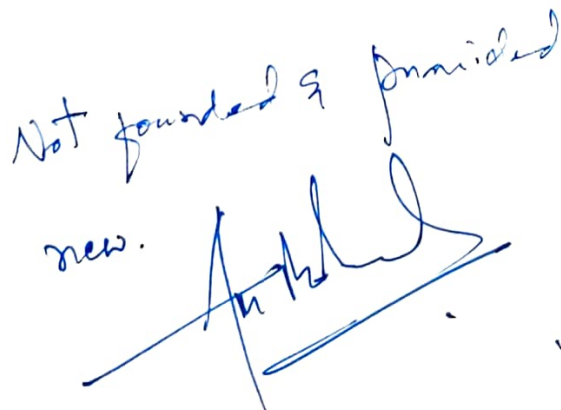 Not founded & provided
new.